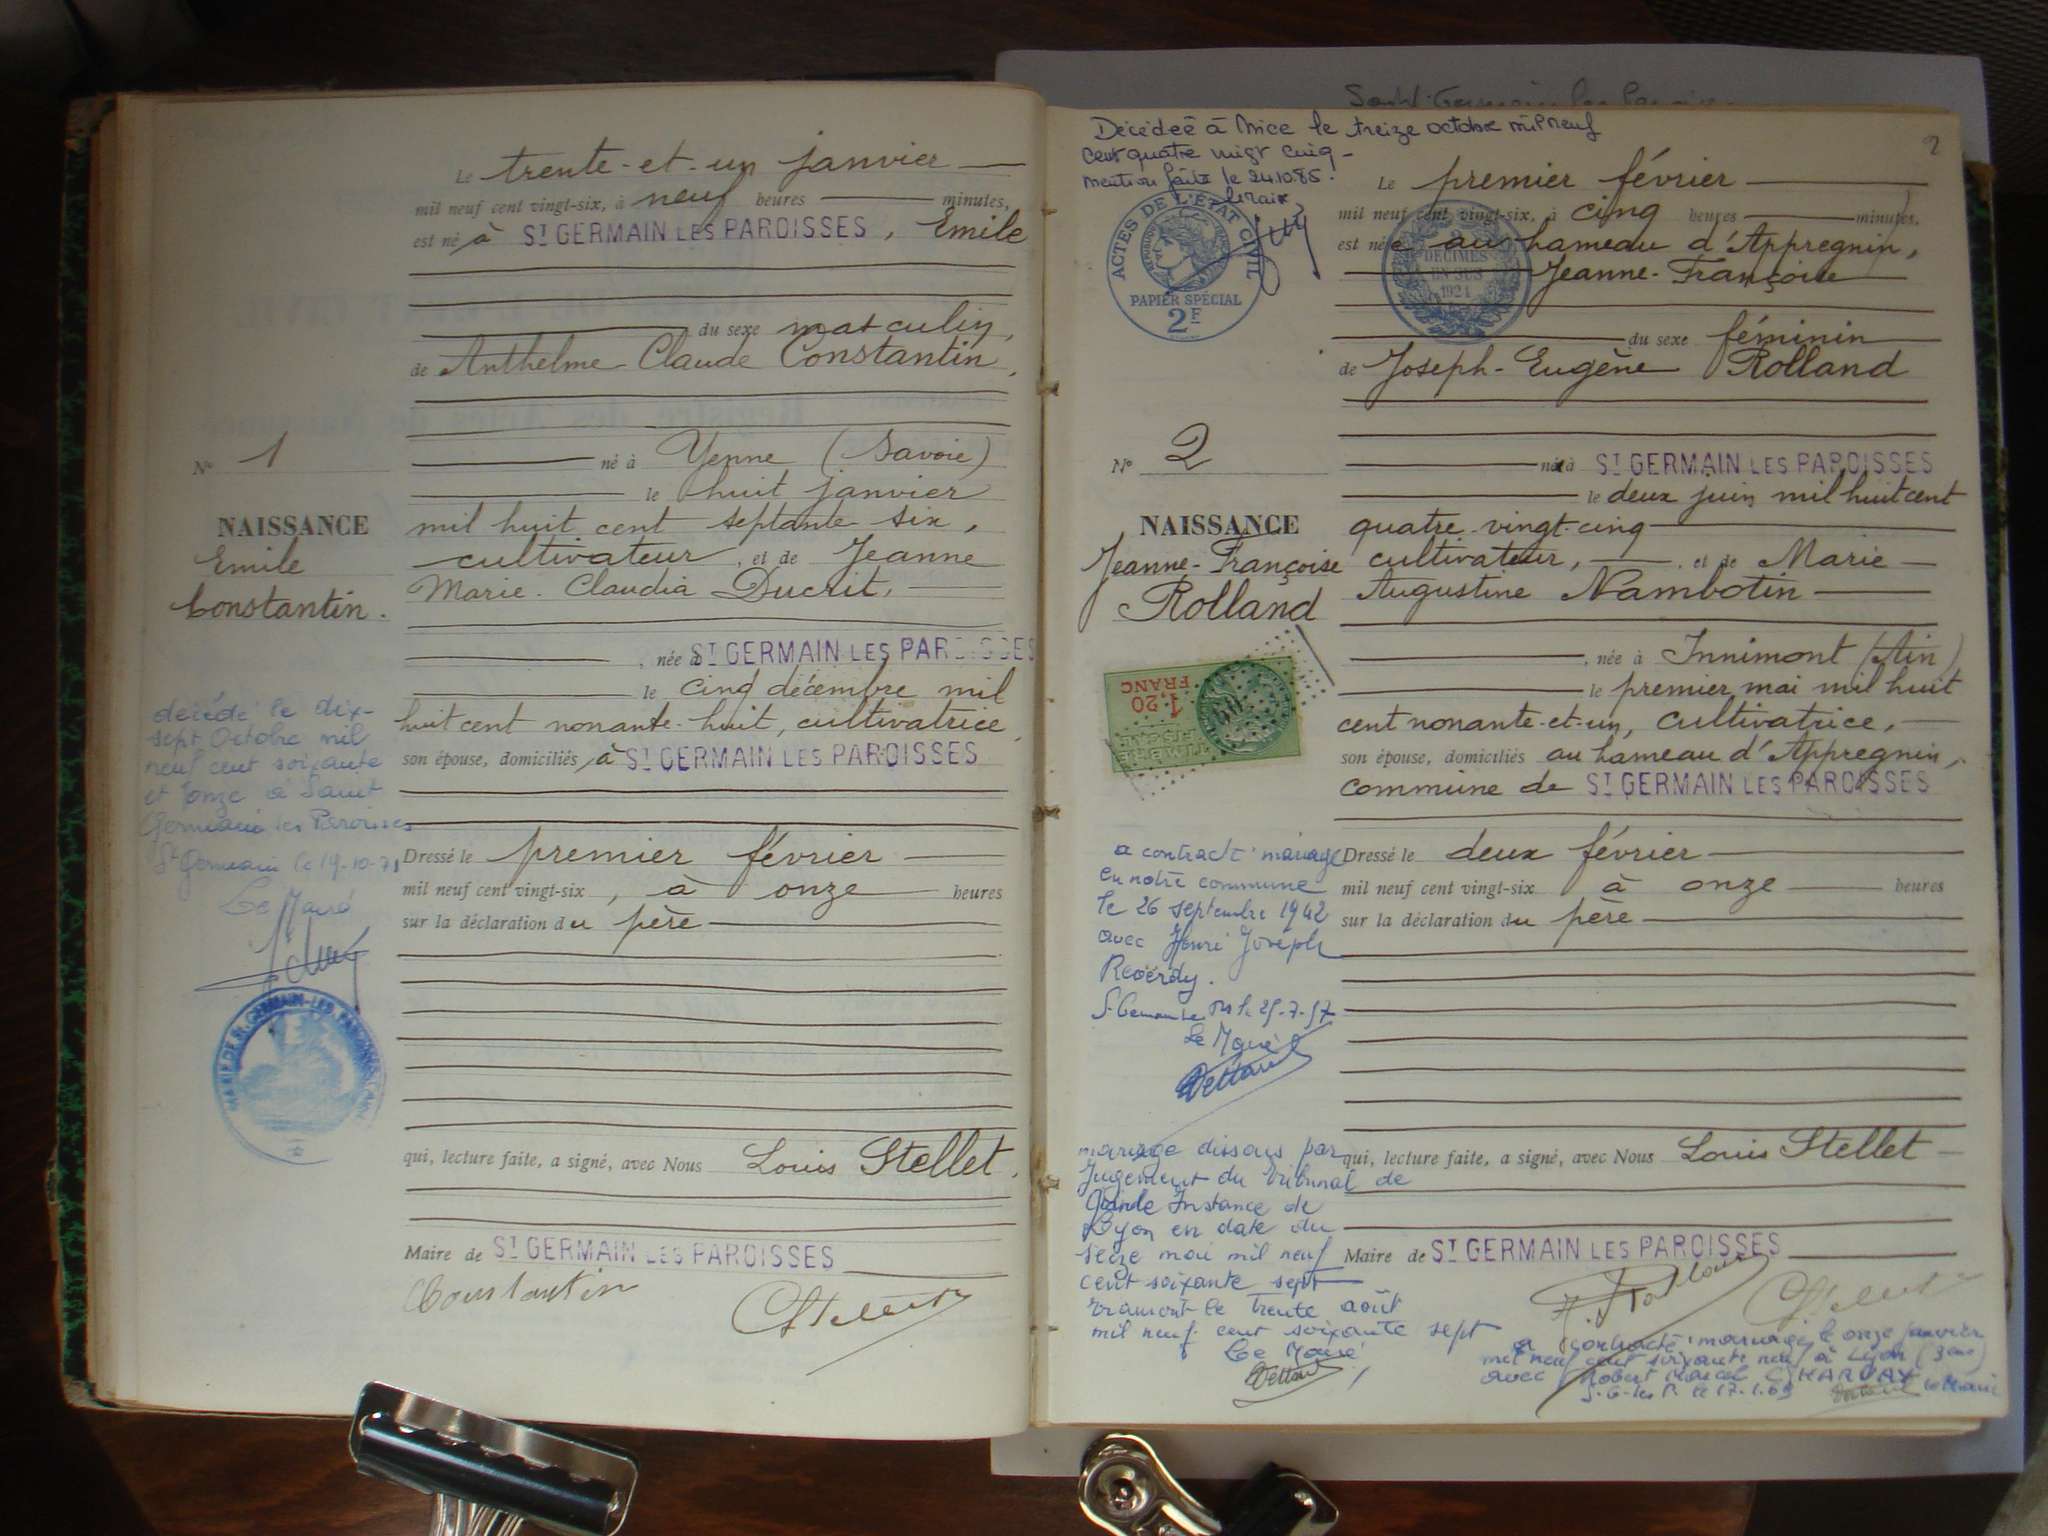 Le trente-et-un janvier
mil neuf cent vingt-six, à neuf heures minutes,
est né à ST GERMAIN LES PAROISSES, Emile
du sexe masculin,
de Anthelme Claude Constantin,
né à Yenne (Savoie)
le huit janvier
mil huit cent septante six,
cultivateur, et de Jeanne
Marie-Claudia Ducrit,
, née à ST GERMAIN LES PAROISSES
le cinq décembre mil
huit cent nonante-huit, cultivatrice,
son épouse, domiciliés à ST GERMAIN LES PAROISSES
Dressé le premier février
mil neuf cent vingt-six, à onze heures
sur la déclaration du père
qui, lecture faite, a signé, avec Nous Louis Stellet,
Maire de ST GERMAIN LES PAROISSES
Constantin
Stellet
No 1
NAISSANCE
Emile
Constantin.
décédé le dix-
sept Octobre mil
neuf cent soixante
et onze à Saint
Germain les Paroisses
St Germain le 19-10-71
Le Maire
MAIRIE DE ST GERMAIN-LES-PAROISSES (AIN)
Saint-Germain les Paroisses
2
Décédée à Nice le treize octobre mil neuf
cent quatre vingt cinq-
mention faite le 24.10.85.
ACTES DE L'ÉTAT CIVIL
PAPIER SPÉCIAL
2F
2
DÉCIMES
EN SUS
1924
Le premier février
mil neuf cent vingt-six, à cinq heures minutes,
est née au hameau d'Appregnin,
Jeanne-Françoise
du sexe féminin
de Joseph-Eugène Rolland
né à ST GERMAIN LES PAROISSES
le deux juin mil huit cent
quatre-vingt-cinq
cultivateur, et de Marie
Augustine Nambotin
, née à Innimont (Ain)
le premier mai mil huit
cent nonante-et-un, cultivatrice,
son épouse, domiciliés au hameau d'Appregnin,
commune de ST GERMAIN LES PAROISSES
Dressé le deux février
mil neuf cent vingt-six à onze heures
sur la déclaration du père
qui, lecture faite, a signé, avec Nous Louis Stellet
Maire de ST GERMAIN LES PAROISSES
No 2
NAISSANCE
Jeanne-Françoise
Rolland
1,20
FRANC
TIMBRE
FISCAL
a contracté mariage
en notre commune
le 26 septembre 1942
avec Henri Joseph
Reverdy.
Le Maire
mariage dissous par
Jugement du Tribunal de
Grande Instance de
Lyon en date du
seize mai mil neuf
cent soixante sept
le trente août
mil neuf cent soixante sept
Le Maire
a contracté mariage le onze janvier
mil neuf cent soixante neuf à Lyon (3eme)
avec Robert Marcel CHARVAY
S.G-les P. le 17.1.69 le Maire